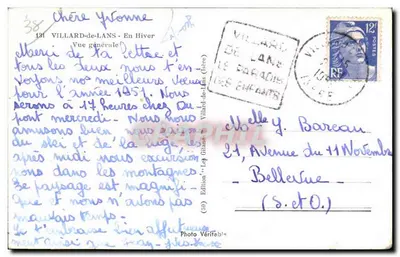 Chère Yvonne
131 VILLARD-de-LANS - En Hiver
(Vue générale)
Merci de ta lettre et
tous les deux nous t'en
voyons nos meilleurs vœux
pour l'année 1951. Nous
serons à 17 heures chez Du
pont mercredi. Nous nous
amusons bien au
du ski et de la luge,
après midi nous excursion
nons dans les montagnes.
Le paysage est magnifi
que et nous n'avons pas
mauvais temps.
Je t'embrasse bien
Edition Les
Villard-de-Lans (Isère)
Photo Véritable
VILLARD
DE LANS
LE PARADIS
DES ENFANTS
12F
POSTES
RF
Melle Y. Bareau
21, Avenue du 11 Novembre
Bellevue
(S.et O.)